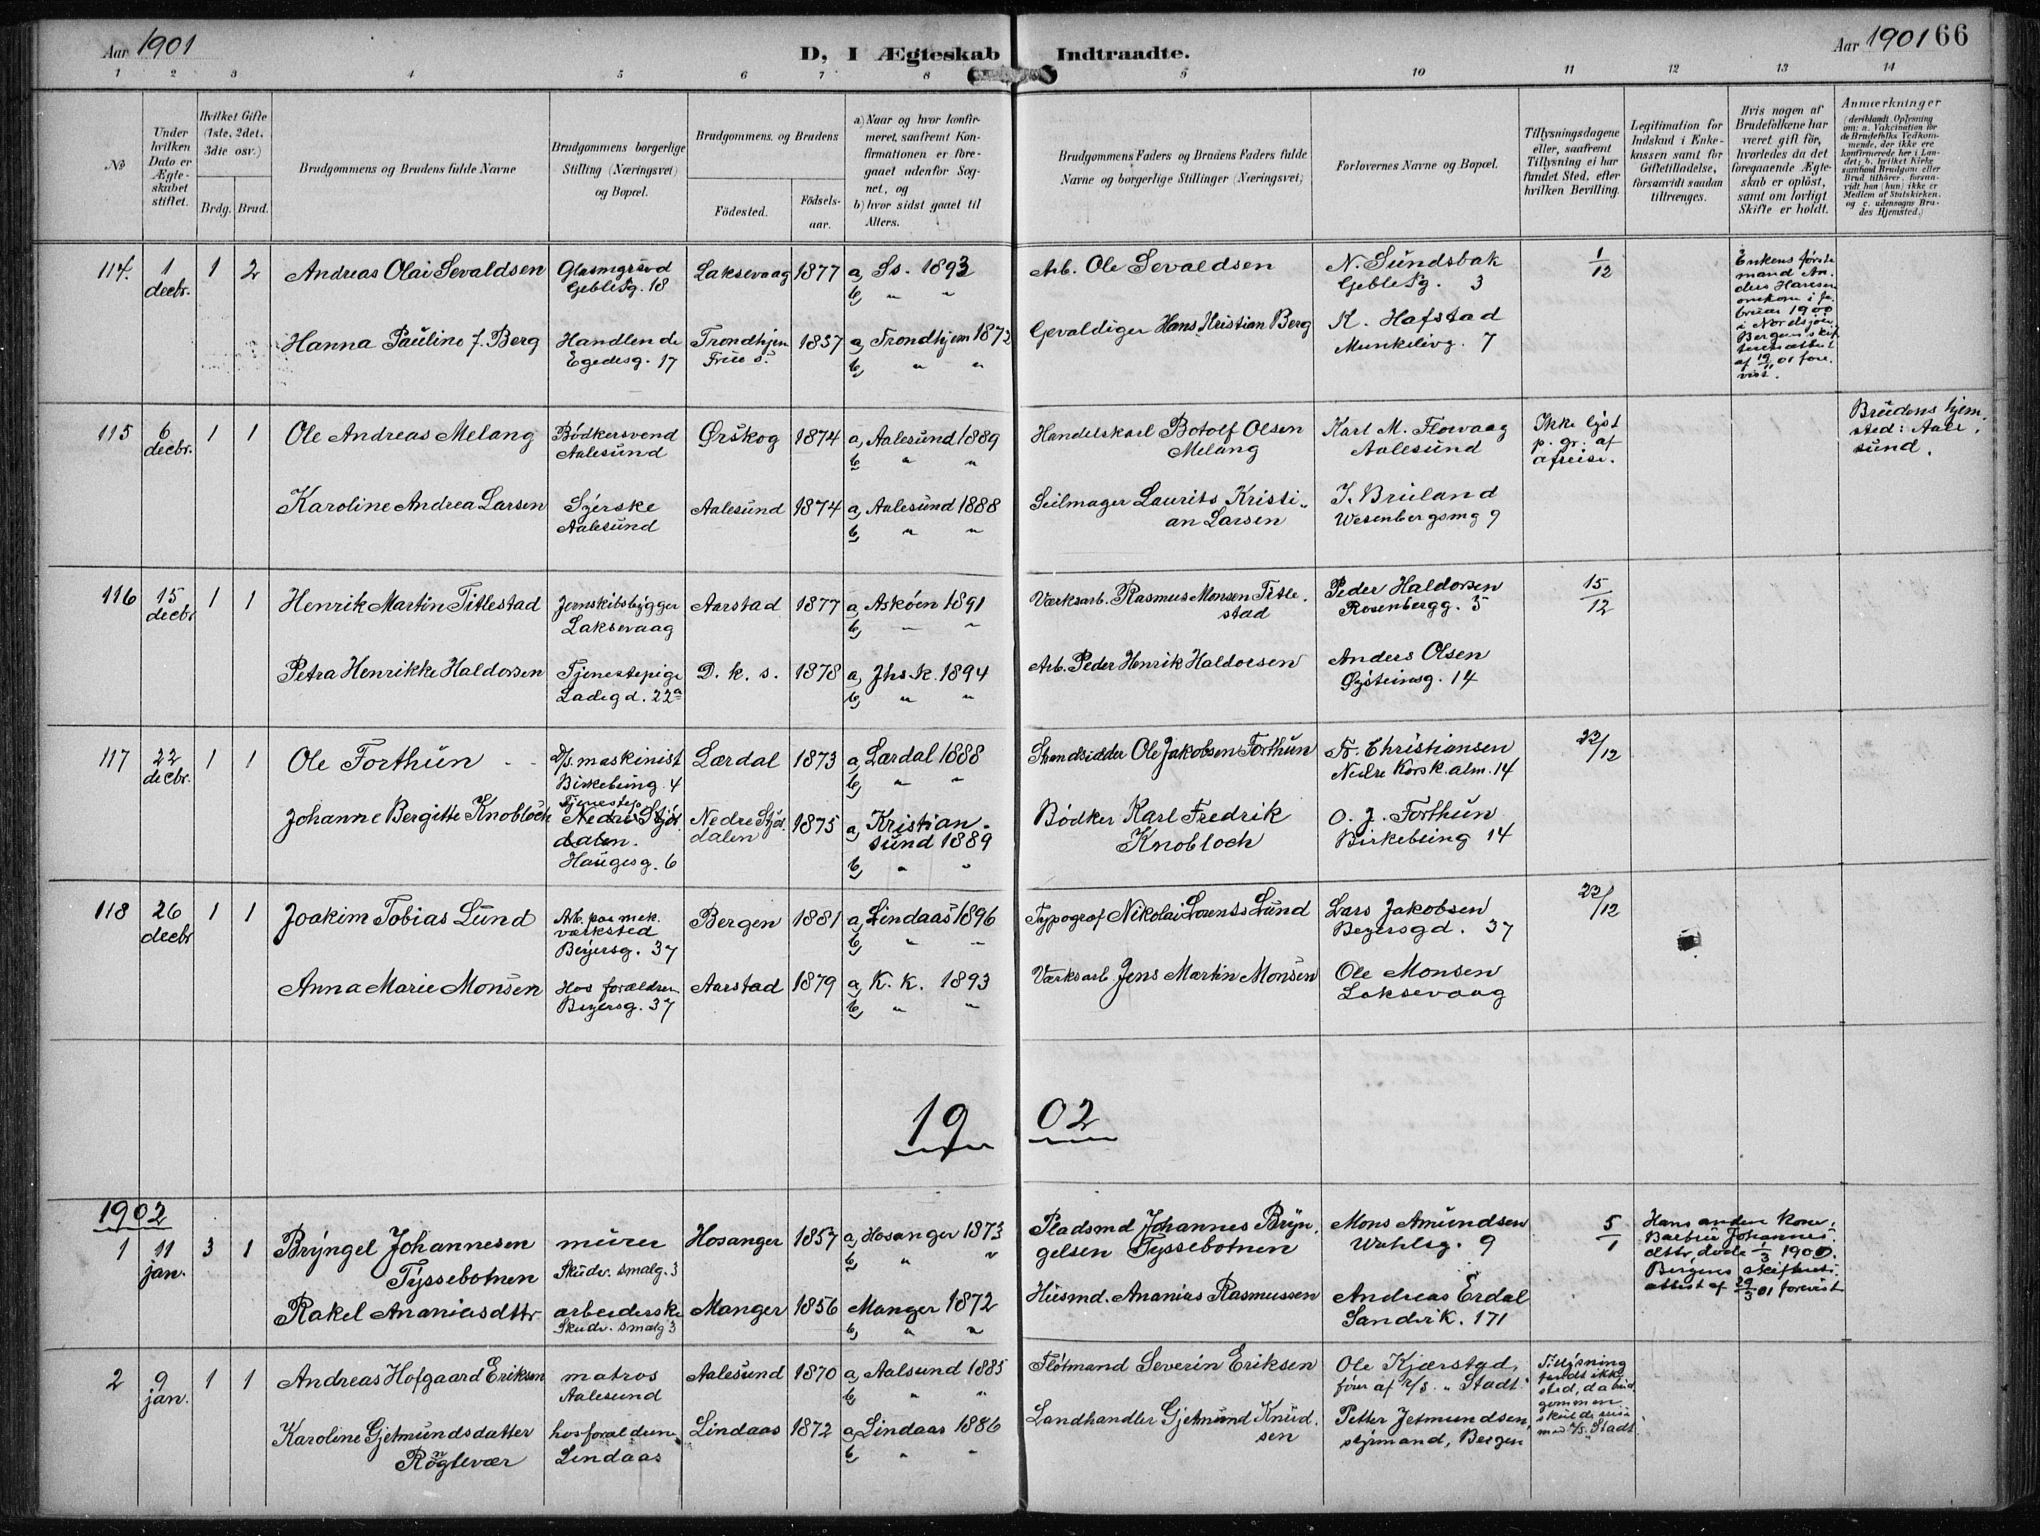 Aar 1901
D, I Ægteskab Indtraadte.
Aar 1901 66
1 2 3 4 5 6 7 8 9 10 11 12 13 14
No
Under hvilken Dato er Ægteskabet stiftet.
Hvilket Gifte (1ste, 2det, 3die osv.)
Brdg. Brud.
Brudgommens og Brudens fulde Navne
Brudgommens borgerlige Stilling (Næringsvei) og Bopæl.
Brudgommens og Brudens
Födested. Födsels-aar.
a) Naar og hvor konfirmeret, saafremt Konfirmationen er foregaaet udenfor Sognet, og
b) hvor sidst gaaet til Alters.
Brudgommens Faders og Brudens Faders fulde Navne og borgerlige Stillinger (Næringsvei)
Forlovernes Navne og Bopæl.
Tillysningsdagene eller, saafremt Tillysning ei har fundet Sted, efter hvilken Bevilling.
Legitimation for Indskud i Enkekassen samt for Giftetilladelse, forsaavidt saadan tiltrænges.
Hvis nogen af Brudefolkene har været gift før, hvorledes da det foregaaende Ægteskab er opløst, samt om lovligt Skifte er holdt.
Anmerkninger
(deriblandt Oplysning om: a. Vakcination for de Brudefolks Vedkommende, der ikke ere konfirmerede her i Landet; b. hvilket Kirkesamfund Brudgom eller Brud tilhører, forsaavidt han (hun) ikke er Medlem af Statskirken, og c. udensogns Brudes Hjemsted.)
114. 1 decbr. 1 2 Andreas Olai Sevaldsen
Glasmgrsvd Geblesg. 18 Laksevaag 1877 a, Ss. 1893
b, " "
Arb. Ole Sevaldsen
N. Sundsbak
Geblesg. 3
1/12
Enkens første mand Anders Hansen omkom i februar 1900 i Nordsjøen Bergens skifteretsattest af 19/11 01 forevist.
Hanna Pauline f. Berg
Handlende Egedesg. 17 Trondhjem Frue s. 1857 a, Trondhjem 1872
b, " "
Gevaldiger Hans Kristian Berg
K. Hofstad
Munkelvg. 7
115 6 decbr. 1 1 Ole Andreas Melang
Bødkersvend Aalesund Ørskog 1874 a, Aalesund 1889
b, " "
Handelskarl Botolf Olsen Melang
Karl M. Flovaag
Aalesund
Ikke lyst p. gr. af afreise.
Brudens hjemsted: Aalesund.
Karoline Andrea Larsen
Syerske Aalesund Aalesund 1874 a, Aalesund 1888
b, " "
Seilmager Laurits Kristian Larsen
J. Bruland
Wesenbergsmg 9
116 15 decbr 1 1 Henrik Martin Titlestad
Jernskibsbygger Laksevaag Aarstad 1877 a, Askøen 1891
b, " "
Værksarb. Rasmus Monsen Titlestad
Peder Haldorsen
Rosenbergg. 5
15/12
Petra Henrikke Haldorsen
Tjenestepige Ladegd. 22a D. k. s. 1878 a, Jhs k. 1894
b, " "
Arb. Peder Henrik Haldorsen
Anders Olsen
Øysteinsg. 14
117 22 decbr. 1 1 Ole Forthun
D/s. maskinist Birkebeing. 4 Lærdal 1873 a, Lærdal 1888
b, " "
Strandsidder Ole Jakobsen Forthun
Fr. Christiansen
Nedre Korsk.alm. 14
22/12
Johanne Bergitte Knobloch
Tjenestep. Nedre Stjørdalen. Haugesg. 6 Nedre Stjørdalen 1875 a, Kristiansund 1889
b, " "
Bødker Karl Fredrik Knobloch
O. J. Forthun
Birkebeing 14
118 26 decbr 1 1 Joakim Tobias Lund
Arb. paa mek. værksted Beyersg. 37 Bergen 1881 a, Lindaas 1896
b, " "
Typograf Nikolai Lorents Lund
Lars Jakobsen
Beyersgd. 37
22/12
Anna Marie Monsen
Hos forældrene Beyersg. 37 Aarstad 1879 a, K. k. 1893
b, " "
Værksarb. Jens Martin Monsen
Ole Monsen
Laksevaag
19 02
1902
1 11 jan. 3 1 Bryngel Johannesen Tyssebotnen
murer Skudv. smalg. 3 Hosanger 1857 a, Hosanger 1873
b, " "
Pladsmd Johannes Bryngelsen Tyssebotnen
Mons Amundsen
Wahlsg. 9
5/1
Hans anden kone, Barbru Johannesdttr, døde 1/3 1900. Bergens skifteretsattest af 29/3 01 forevist
Rakel Ananiasdttr.
arbeiderske Skudv. smalg 3 Manger 1856 Manger 1872
b, " "
Husmd. Ananias Rasmussen
Andreas Erdal
Sandvik. 171
2 9 jan. 1 1 Andreas Hofgaard Eriksen
matros Aalesund Aalesund 1870 a, Aalsund 1885
b, " "
Fløtmand Severin Eriksen
Ole Kjærstad,
fører af D/S. "Stadt"
Tillysning fandt ikke sted, da brudgommen skulde reise med D/S. "Stadt"
Karoline Gjetmundsdatter Rongevær
hos forældrene, Lindaas Lindaas 1872 a, Lindaas 1886
b, " "
Landhandler Gjetmund Knudsen
Petter Jetmundsen,
styrmand, Bergen